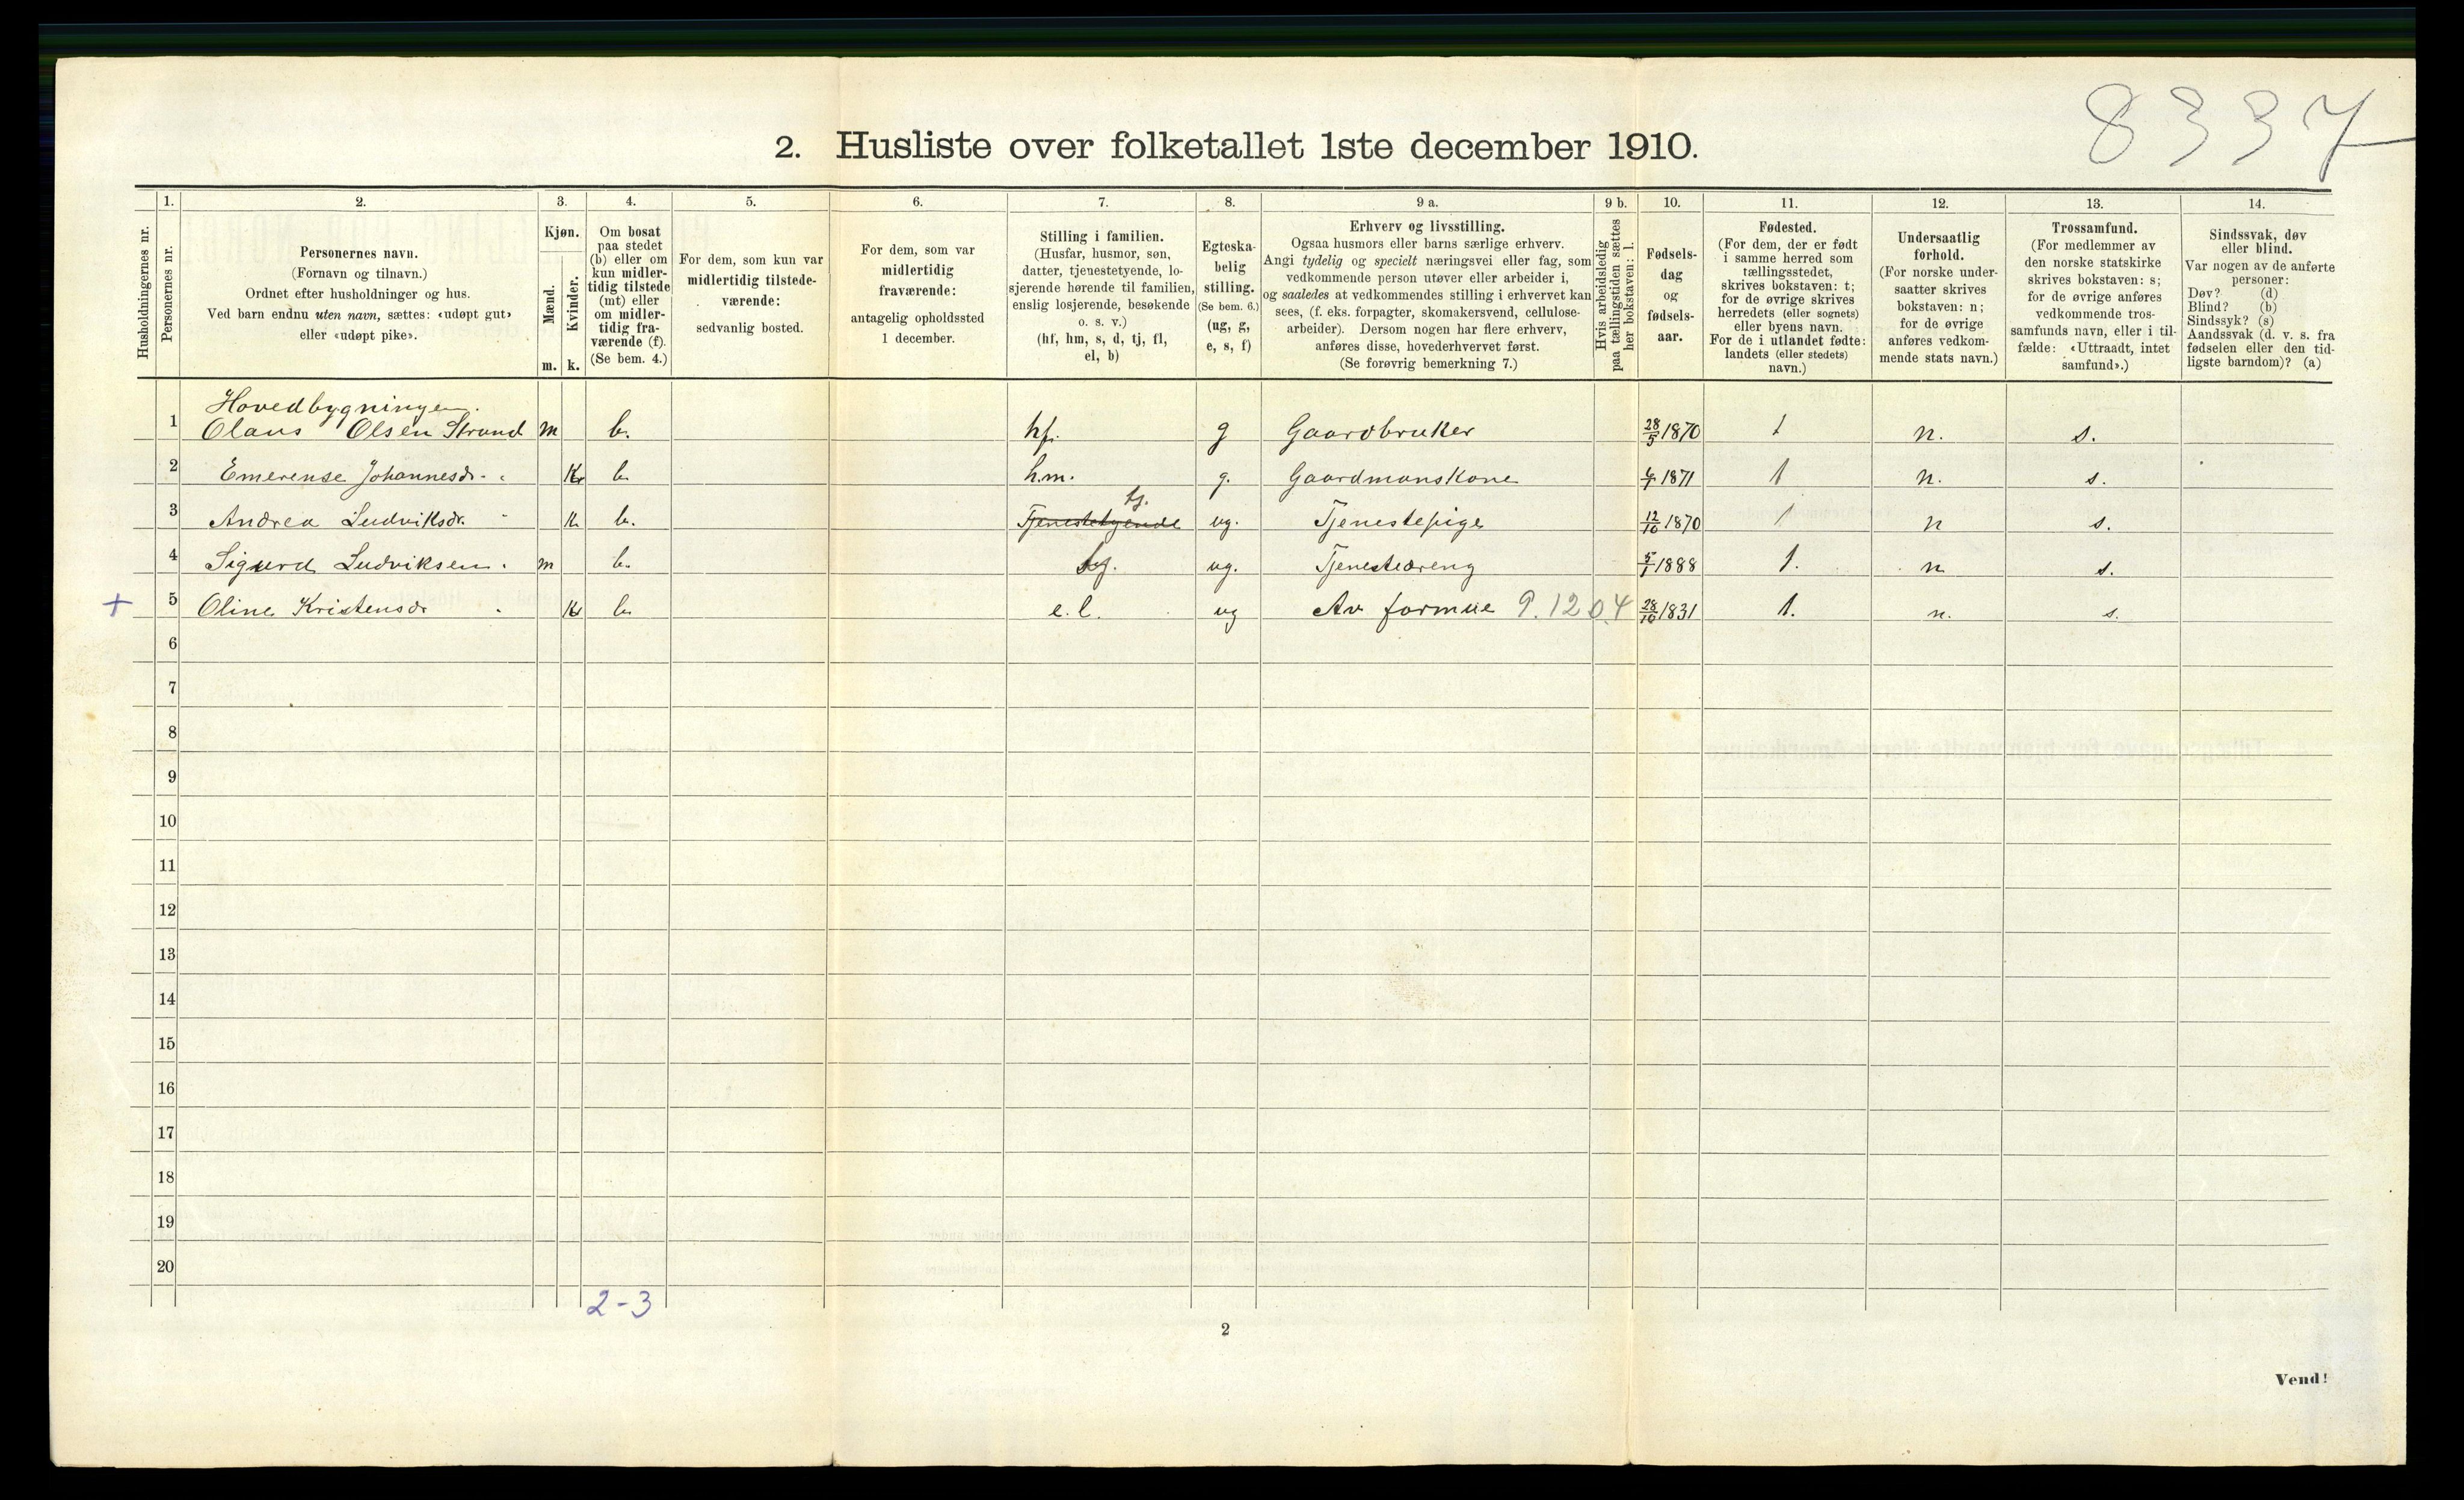 8337
2. Husliste over folketallet 1ste december 1910.
1. 2. 3. 4. 5. 6. 7. 8. 9 a. 9 b. 10. 11. 12. 13. 14.
Husholdningernes nr.
Personernes nr.
Personernes navn.
(Fornavn og tilnavn.)
Ordnet efter husholdninger og hus.
Ved barn endnu uten navn, sættes: «udøpt gut»
eller «udøpt pike».
Kjøn.
Mænd.
Kvinder.
m. k.
Om bosat
paa stedet
(b) eller om
kun midler-
tidig tilstede
(mt) eller
om midler-
tidig fra-
værende (f).
(Se bem. 4.)
For dem, som kun var
midlertidig tilstede-
værende:
sedvanlig bosted.
For dem, som var
midlertidig
fraværende:
antagelig opholdssted
1 december.
Stilling i familien.
(Husfar, husmor, søn,
datter, tjenestetyende, lo-
sjerende hørende til familien,
enslig losjerende, besøkende
o. s. v.)
(hf, hm, s, d, tj, fl,
el, b)
Egteska-
belig
stilling.
(Se bem. 6.)
(ug, g,
e, s, f)
Erhverv og livsstilling.
Ogsaa husmors eller barns særlige erhverv.
Angi tydelig og specielt næringsvei eller fag, som
vedkommende person utøver eller arbeider i,
og saaledes at vedkommendes stilling i erhvervet kan
sees, (f. eks. forpagter, skomakersvend, cellulose-
arbeider). Dersom nogen har flere erhverv,
anføres disse, hovederhvervet først.
(Se forøvrig bemerkning 7.)
Hvis arbeidsledig
paa tællingstiden sættes
her bokstaven: l.
Fødsels-
dag
og
fødsels-
aar.
Fødested.
(For dem, der er født
i samme herred som
tællingsstedet,
skrives bokstaven: t;
for de øvrige skrives
herredets (eller sognets)
eller byens navn.
For de i utlandet fødte:
landets (eller stedets)
navn.)
Undersaatlig
forhold.
(For norske under-
saatter skrives
bokstaven: n;
for de øvrige
anføres vedkom-
mende stats navn.)
Trossamfund.
(For medlemmer av
den norske statskirke
skrives bokstaven: s;
for de øvrige anføres
vedkommende tros-
samfunds navn, eller i til-
fælde: «Uttraadt, intet
samfund».)
Sindssvak, døv
eller blind.
Var nogen av de anførte
personer:
Døv? (d)
Blind? (b)
Sindssyk? (s)
Aandssvak (d. v. s. fra
fødselen eller den tid-
ligste barndom)? (a)
Hovedbygningen.
1 Olaus Olsen Strand m b. hf. g Gaardbruker 28/5 1870 t n. s.
2 Emerense Johannesdr. " k b. h.m. g. Gaardmanskone 1871 t n. s.
tj.
3 Andrea Ludviksdr. " k b. Tjenestetyende ug. Tjenestepige 12/10 1870 t n s.
4 Sigurd Ludviksen " m b. tj. ug. Tjenestedreng 5/1 1888 t. n s.
+ 5 Oline Kristensdr " k b. e.l. ug Av formue 9.1204 28/10 1831 t. n. s.
6
7
8
9
10
11
12
13
14
15
16
17
18
19
20
2-3
2
Vend!